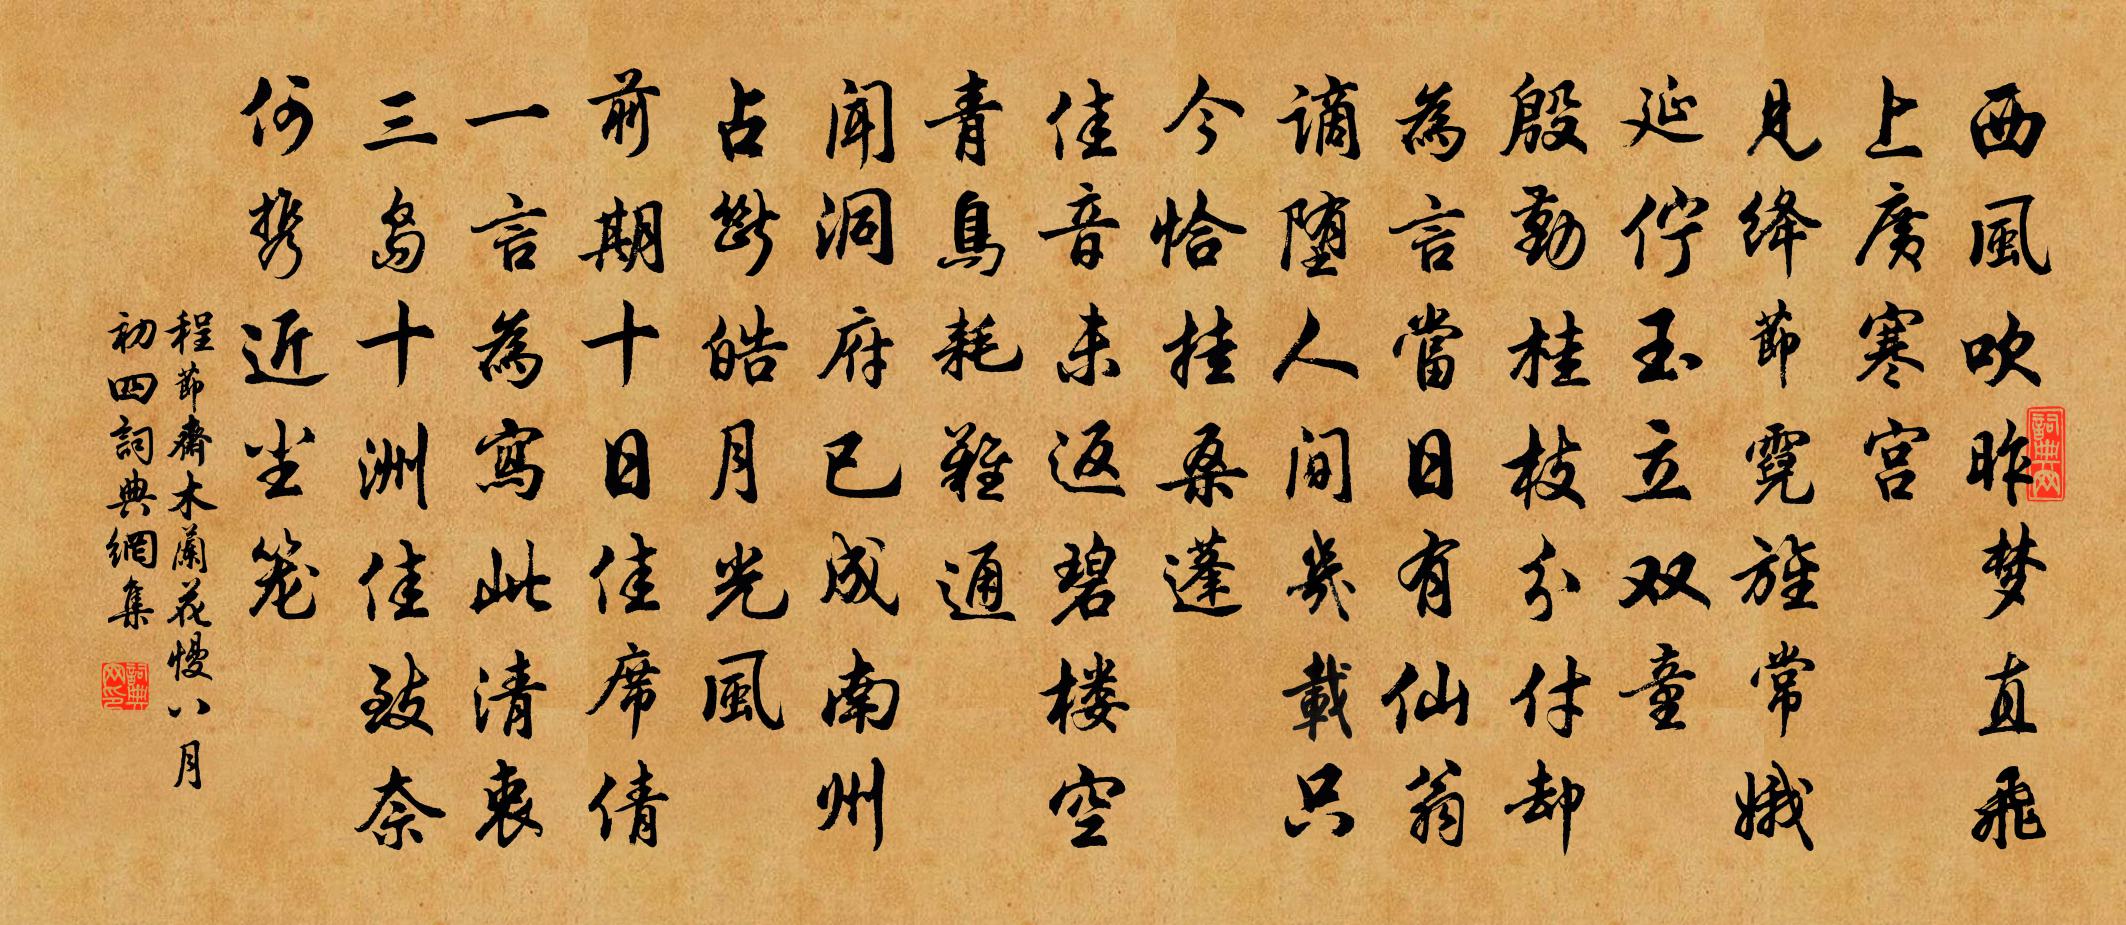 西風吹昨梦直飛
上廣寒宫
見绛節霓旌常娥
延佇玉立双童
殷勤桂枝分付却
為言當日有仙翁
谪堕人间幾載只
今恰挂桑蓬
佳音未返碧楼空
青鳥耗難通
闻洞府已成南州
占斷皓月光風
前期十日佳席倩
一言為寫此清衷
三島十洲佳致奈
何携近尘笼
程節齋木蘭花慢八月
初四詞典網集
詞典网
詞典网印